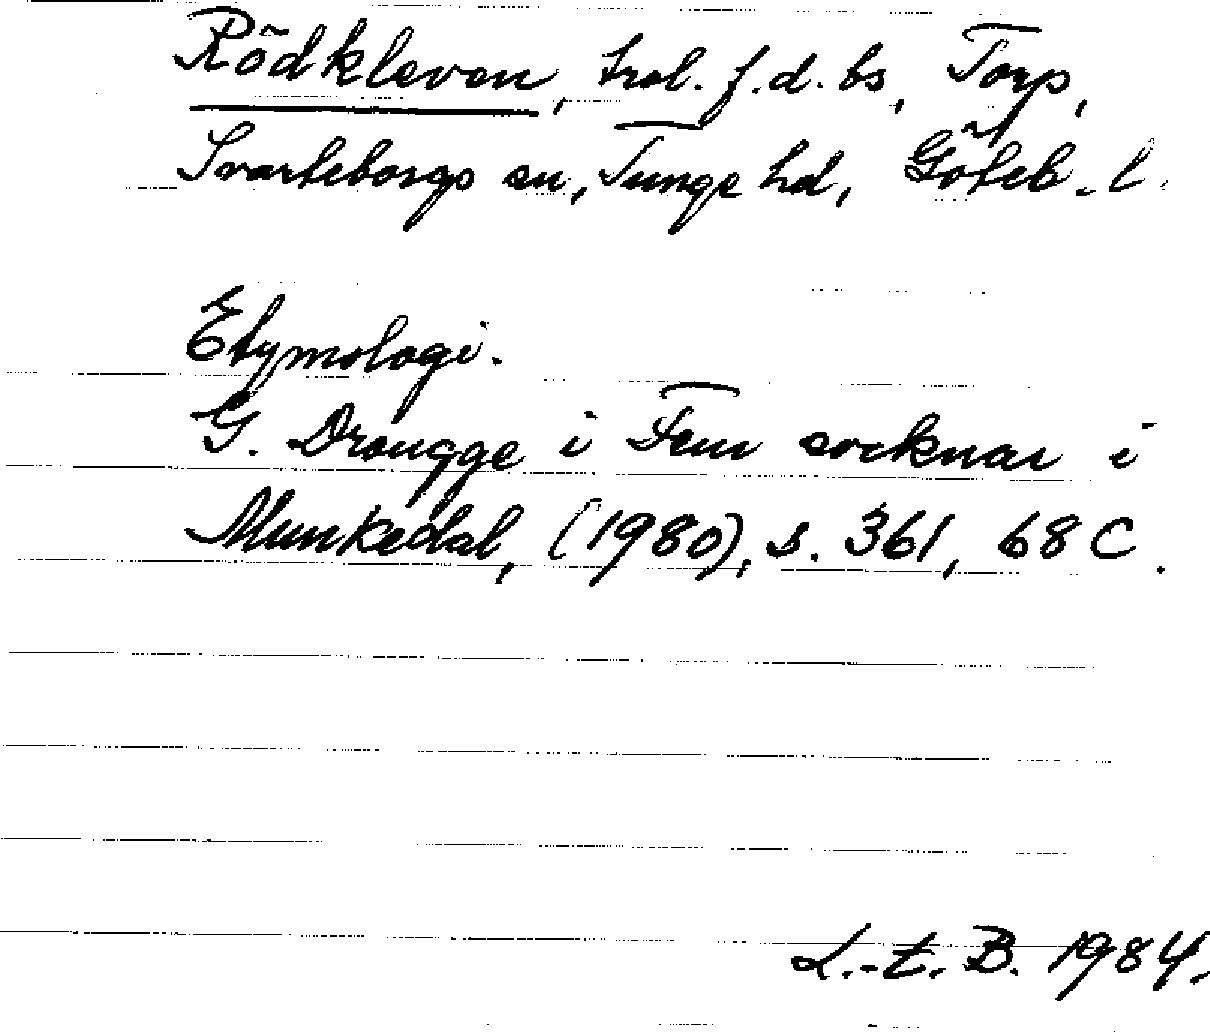 Rödkleven, trol. f.d. bs, Torp,
Svarteborgs sn, Tunge hd, Göteb. l.
Etymologi.
G. Drougge i Fem socknar i
Munkedal, (1980), s. 361, 68 C.
L.-E. B. 1984.